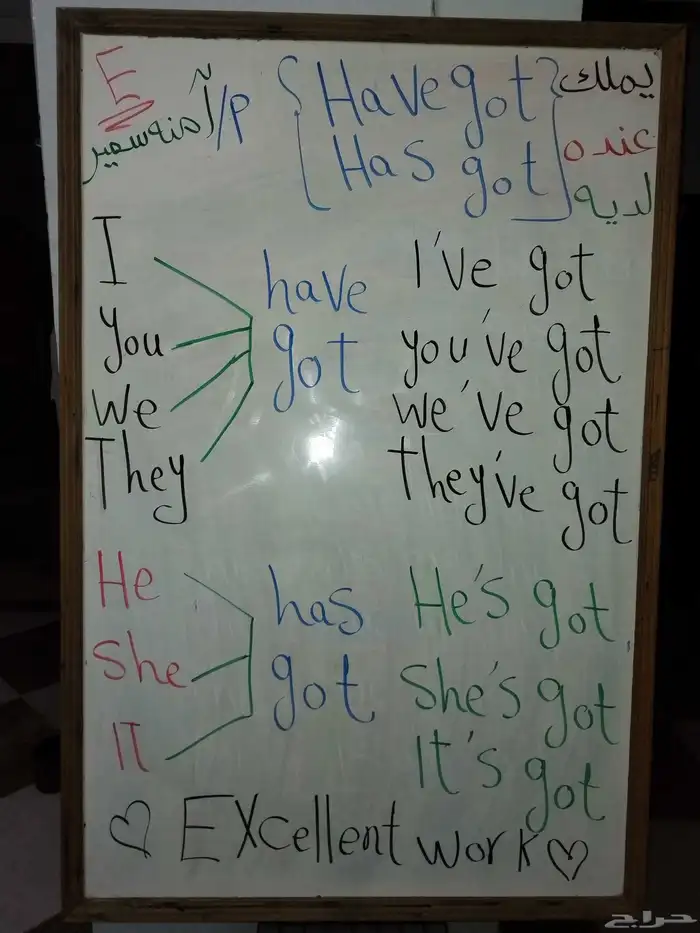 E
آمنه سمير /P
Have got يملك
Has got عنده
لديه
I
You
We
They
have
got
I've got
you've got
we've got
they've got
He
She
IT
has
got
He's got
She's got
It's got
EXcellent work
حراج